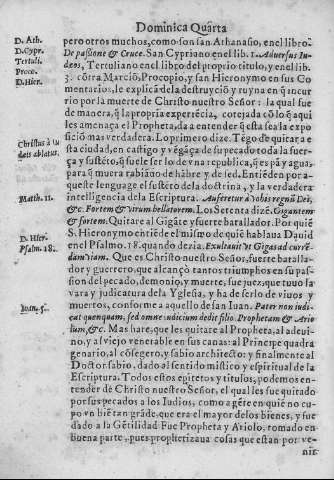 Dominica Quarta
D. Ath.
D. Cypr.
Tertuli.
Proco.
D. Hier.
Christus à iu
dæis ablatus.
Math. 11.
D. Hier.
Psalm. 18.
Ioan. 5.
pero otros muchos, como son san Athanasio, en el libro
De passione & Cruce. San Cypriano en el lib. 1. Aduersus Iu-
deos, Tertuliano en el libro del proprio titulo, y en el lib.
3. cōtra Marciō, Procopio, y san Hieronymo en sus Co
mentarios, le explicā de la destruyciō y ruyna en q̄ incur
rio por la muerte de Christo nuestro Señor: la qual fue
de manera, q̄ la propria experiēcia, cotejada cō lo q̄ aqui
les amenaça el Propheta, da a entender q̄ esta sea la expo
siciō mas verdadera. Lo primero dize. Tēgo de quitar a e
sta ciudad, en castigo y vēgāça de su pecado toda la fuer-
ça y sustēto, q̄ suele ser lo de vna republica, q̄ es pā y agua,
para q̄ muera rabiādo de hābre y de sed. Entiēden por a-
queste lenguage el sustēto de la doctrina, y la verdadera
intelligencia de la Escriptura. Auferetur à vobis regnū Dei,
&c. Fortem & virum bellatorem. Los Setenta dizē. Gigantem
& fortem. Quitare al Gigāte y fuerte batallador. Por quiē
S. Hieronymo entiēde el mismo de quiē hablaua Dauid
en el Psalmo. 18. quando dezia. Exultauit vt Gigas ad currē-
dam viam. Que es Christo nuestro Señor, fuerte batalla-
dor y guerrero, que alcançò tantos triumphos en su pas
sion del pecado, demonio, y muerte, fue juez, que tuuo la
vara y judicatura de la Yglesia, y ha de serlo de viuos y
muertos, conforme a aquello de san Iuan. Pater non iudi-
cat quenquam, sed omne iudicium dedit filio. Prophetam & Ario
lum, &c. Mas hare, que les quitare al Propheta, al adeui-
no, y al viejo venerable en sus canas: al Principe quadra
genario, al cōsegero, y sabio architecto: y finalmente al
Doctor sabio, dado al sentido mistico y espiritual de la
Escriptura. Todos estos epitetos y titulos, podemos en-
tender de Christo nuestro Señor, el qual les fue quitado
por sus pecados a los Iudios, como a gēte en quiē no cu-
po vn biē tan grāde, que era el mayor de los bienes, y fue
dado a la Gētilidad Fue Propheta y Ariolo, tomado en
buena parte, pues prophetizaua cosas que estan por ve-
nir.